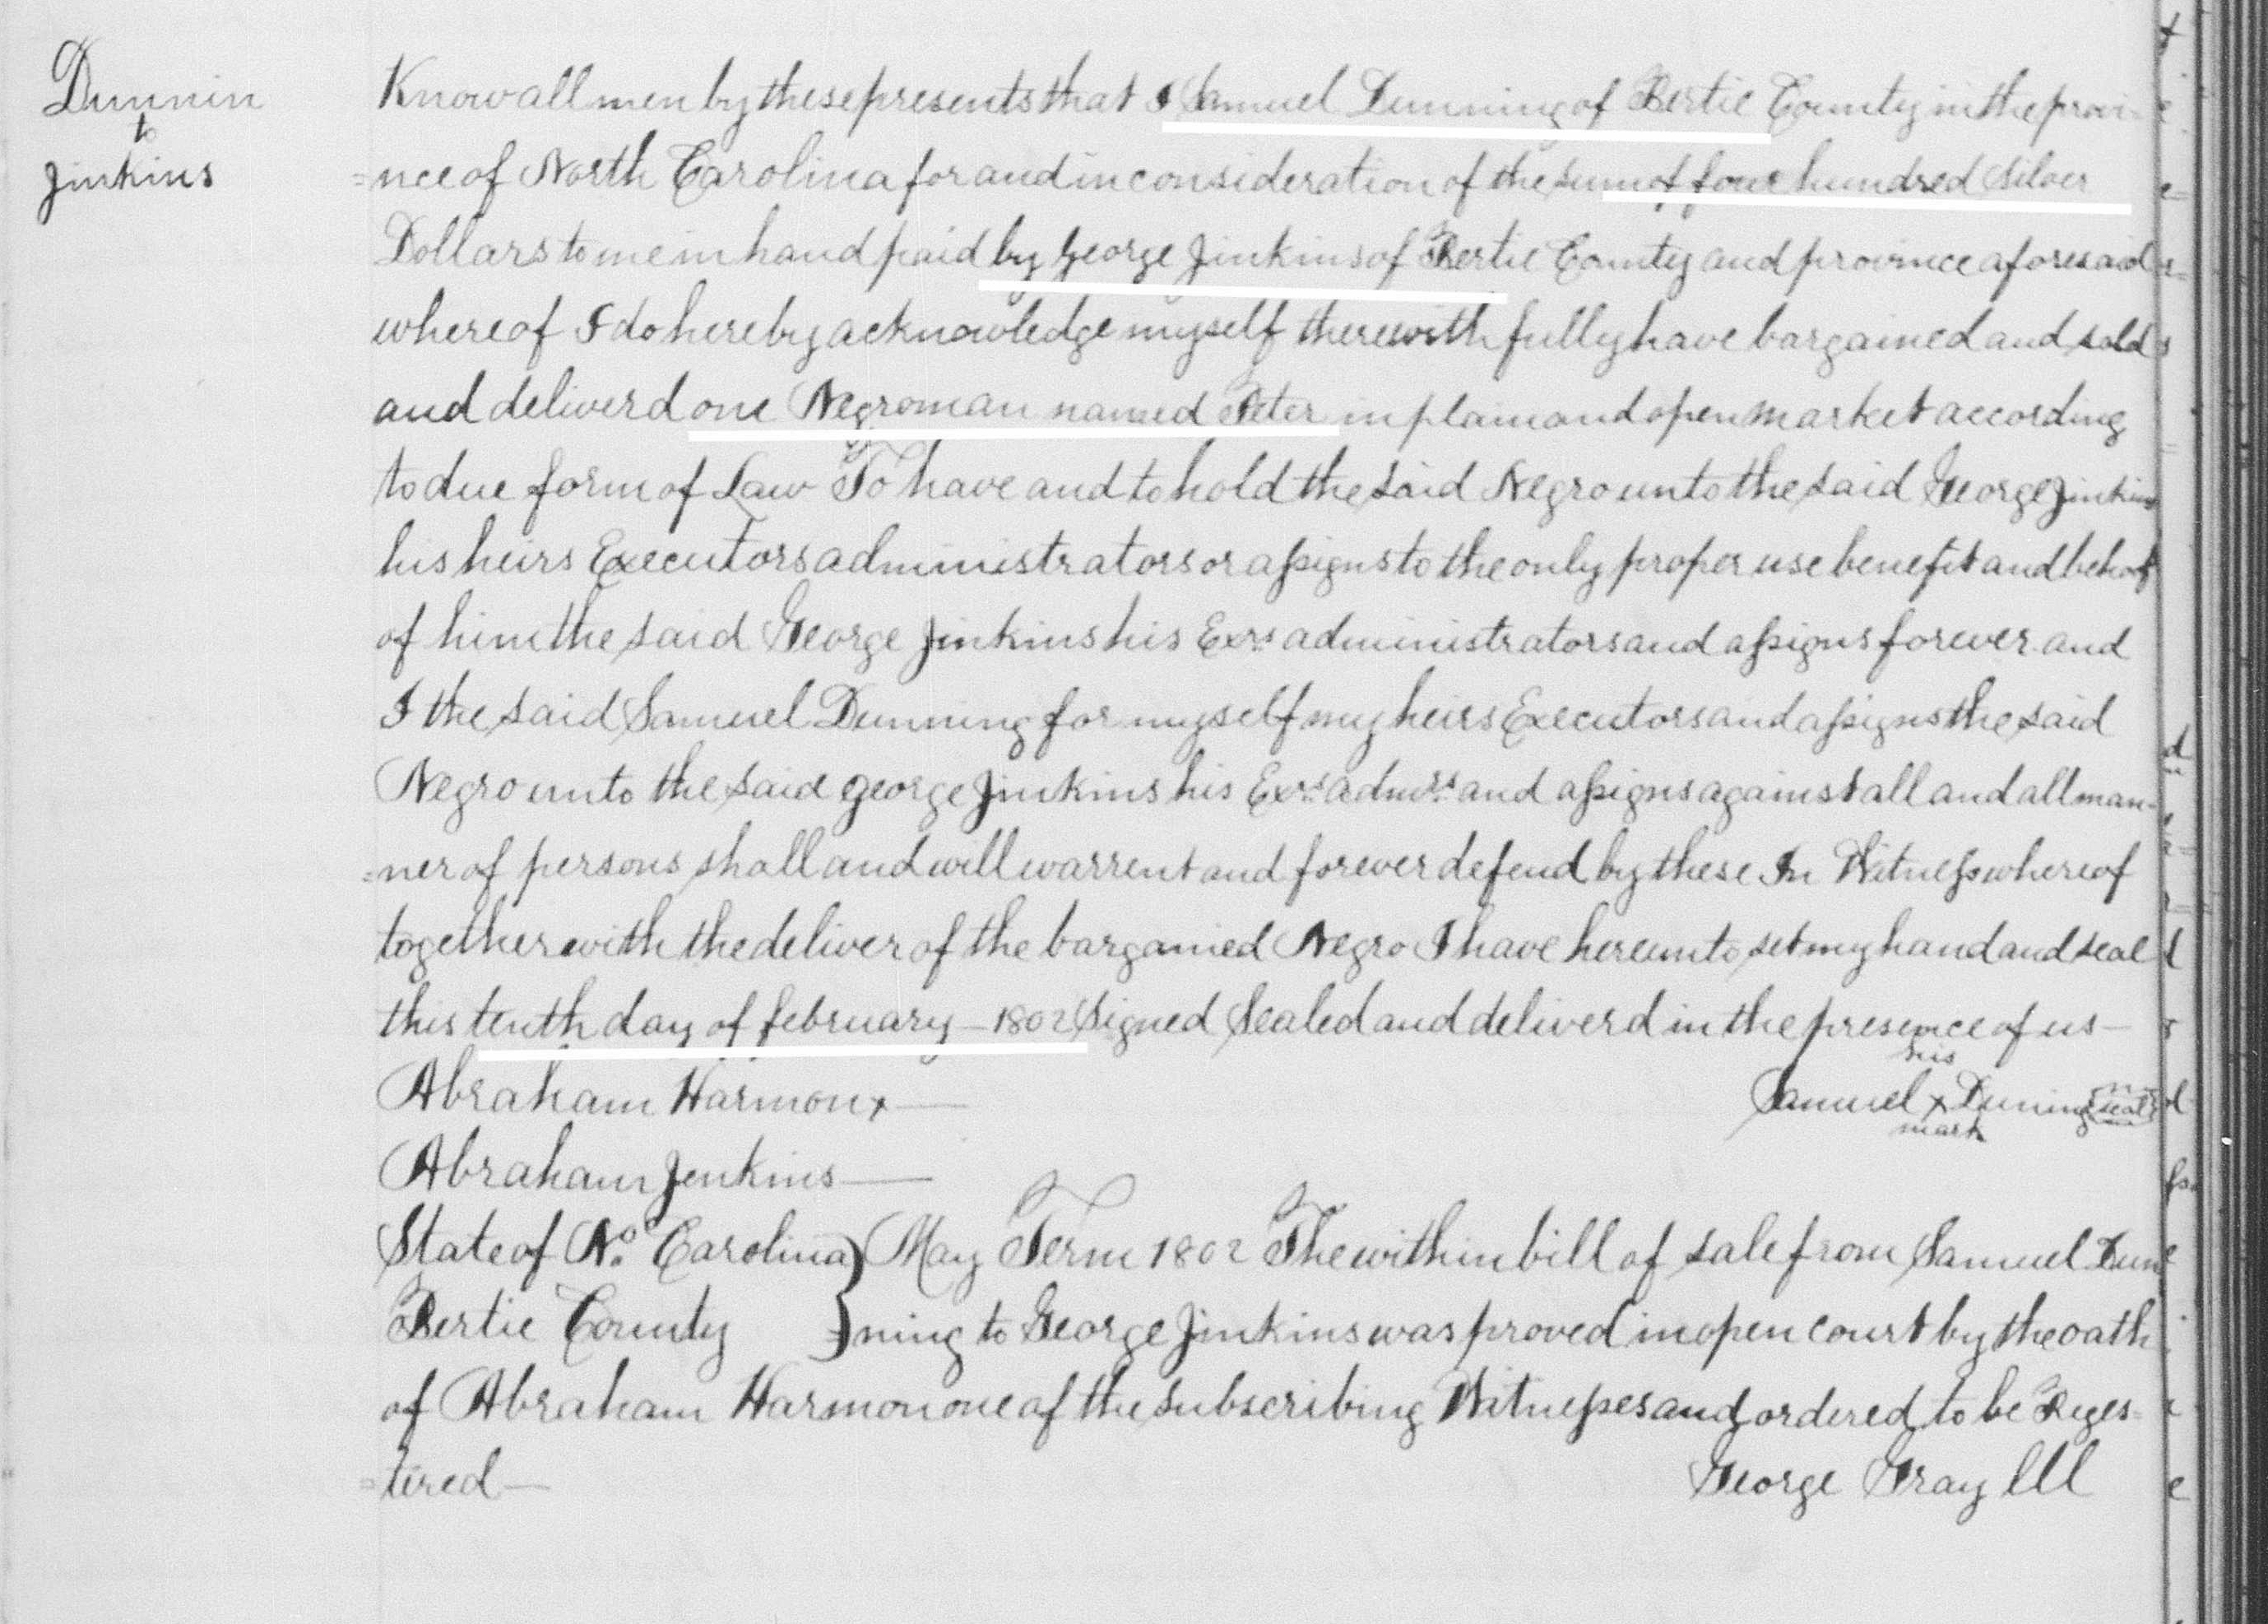 Dunnin
to
Jinkins
Know all men by these presents that I Samuel Dunning of Bertie County in the provi-
=nce of North Carolina for and in consideration of the sum of four hundred silver
Dollars to me in hand paid by George Jinkins of Bertie County and province aforesaid
whereof I do hereby acknowledge myself therewith fully have bargained and sold
and deliverd one Negro man named Peter in plain and open market according
to due form of Law To have and to hold the said Negro unto the said George Jinkins
his heirs Executors administrators or assigns to the only proper use benefit and behoof
of him the said George Jinkins his Exrs administrators and assigns forever and
I the said Samuel Dunning for myself my heirs Executors and assigns the said
Negro unto the said george Jinkins his Exrs admrs and assigns against all and all man-
=ner of persons shall and will warrent and forever defend by these In Witness whereof
together with the deliver of the bargained Negro I have hereunto set my hand and seal
this tenth day of february - 1802 Signed Sealed and deliverd in the presence of us -
his
Abraham Harmon x — Samuel x Duning seal
mark
Abraham Jenkins —
State of No. Carolina } May Term 1802 The within bill of sale from Samuel Dun
Bertie County } =ning to George Jinkins was proved in open court by the oath
of Abraham Harmon one of the subscribing Witnesses and ordered to be Reges=
=tered — George Gray CCC